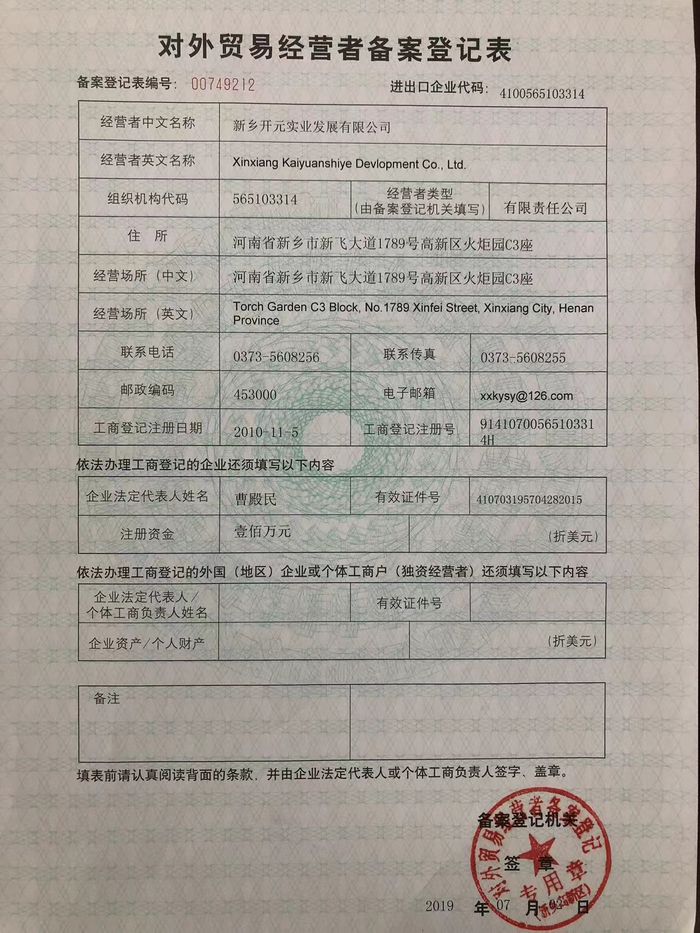 对外贸易经营者备案登记表
备案登记表编号: 00749212 进出口企业代码: 4100565103314
经营者中文名称 新乡开元实业发展有限公司
经营者英文名称 Xinxiang Kaiyuanshiye Devlopment Co., Ltd.
组织机构代码 565103314 经营者类型 (由备案登记机关填写) 有限责任公司
住 所 河南省新乡市新飞大道1789号高新区火炬园C3座
经营场所(中文) 河南省新乡市新飞大道1789号高新区火炬园C3座
经营场所(英文) Torch Garden C3 Block, No.1789 Xinfei Street, Xinxiang City, Henan
Province
联系电话 0373-5608256 联系传真 0373-5608255
邮政编码 453000 电子邮箱 xxkysy@126.com
工商登记注册日期 2010-11-5 工商登记注册号 91410700565103314H
依法办理工商登记的企业还须填写以下内容
企业法定代表人姓名 曹殿民 有效证件号 410703195704282015
注册资金 壹佰万元 (折美元)
依法办理工商登记的外国(地区)企业或个体工商户(独资经营者)还须填写以下内容
企业法定代表人/
个体工商负责人姓名 有效证件号
企业资产/个人财产 (折美元)
备注
填表前请认真阅读背面的条款,并由企业法定代表人或个体工商负责人签字、盖章。
备案登记机关
签 章
对外贸易经营者备案登记
专用章
2019 年 07 月 日